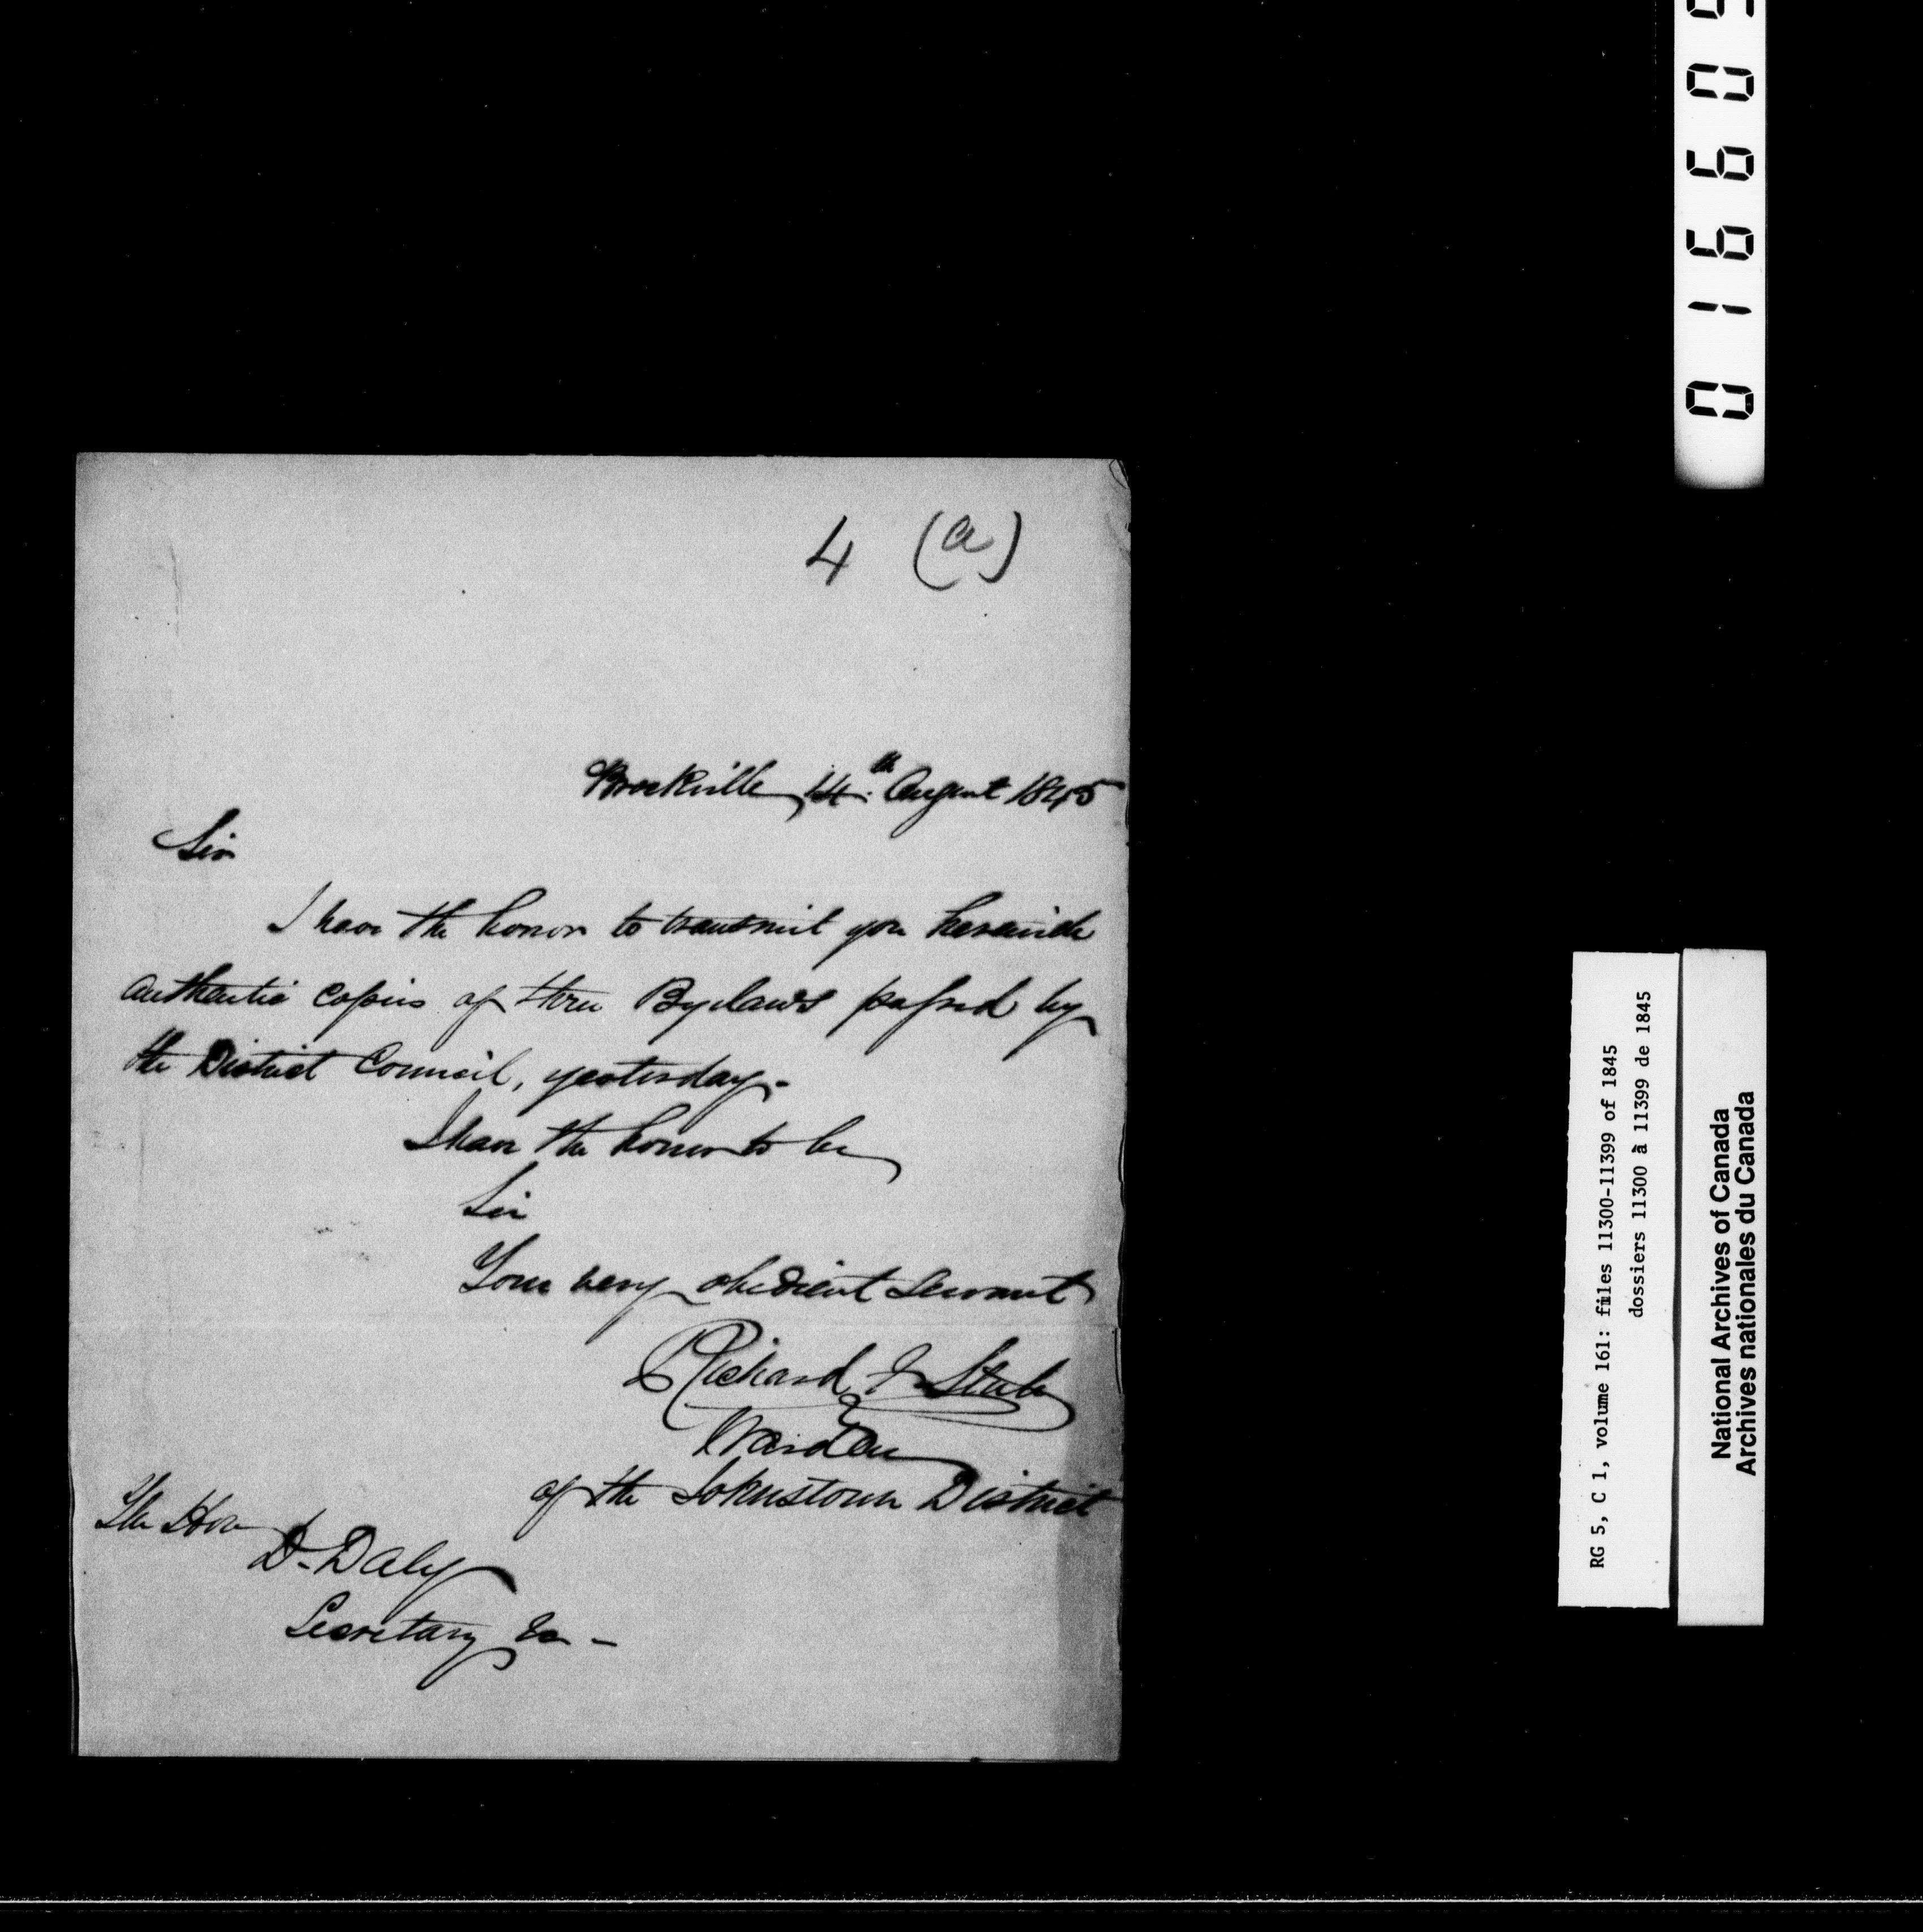 4 (a)
Brockville, 14th. August 1845
Sir
I have the honor to transmit you herewith
authentic copies of three Bylaws passed by
the District Council, yesterday.
I have the honor to be
Sir
Your very obedient Servant
Richard
Warden
of the Johnstown District
The Hon
D. Daly
Secretary &c -
01660
RG 5, C 1, volume 161: files 11300-11399 of 1845
dossiers 11300 à 11399 de 1845
National Archives of Canada
Archives nationales du Canada